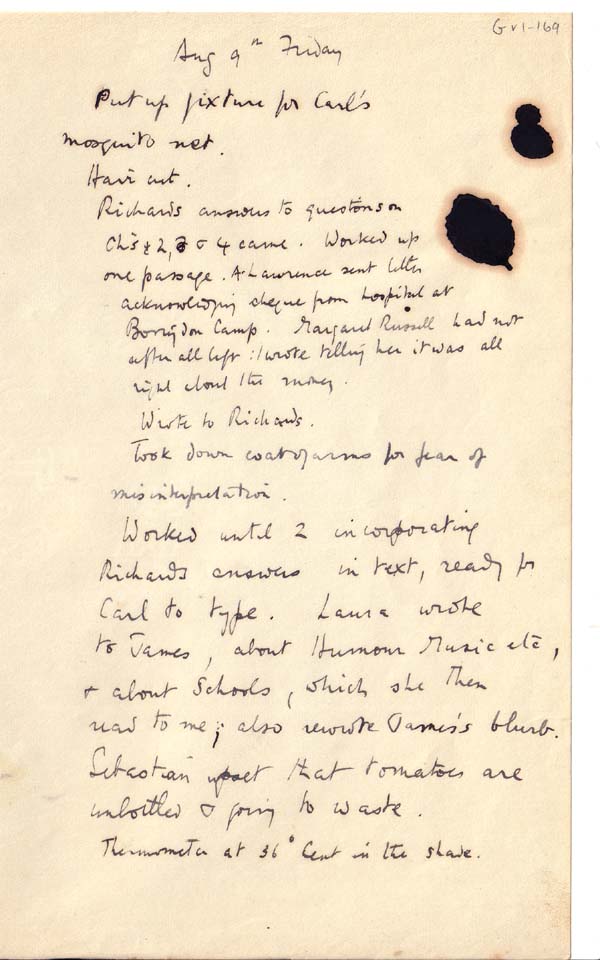 G v 1-169
Aug 9th Friday
Put up fixture for Carl's
mosquito net.
Hair cut.
Richards answers to questions on
Ch's 2, 3 & 4 came. Worked up
one passage. A Lawrence sent letter
acknowledging cheque from hospital at
Camp. Margaret Russell had not
after all left: I wrote telling her it was all
right about the money.
Wrote to Richards.
Took down coat of arms for fear of
misinterpretation.
Worked until 2 incorporating
Richards answers in text, ready for
Carl to type. Laura wrote
to James, about Humour Music etc,
& about Schools, which she then
read to me; also rewrote James's blurb.
Sebastian upset that tomatoes are
unbottled & going to waste.
Thermometer at 36° Cent in the shade.